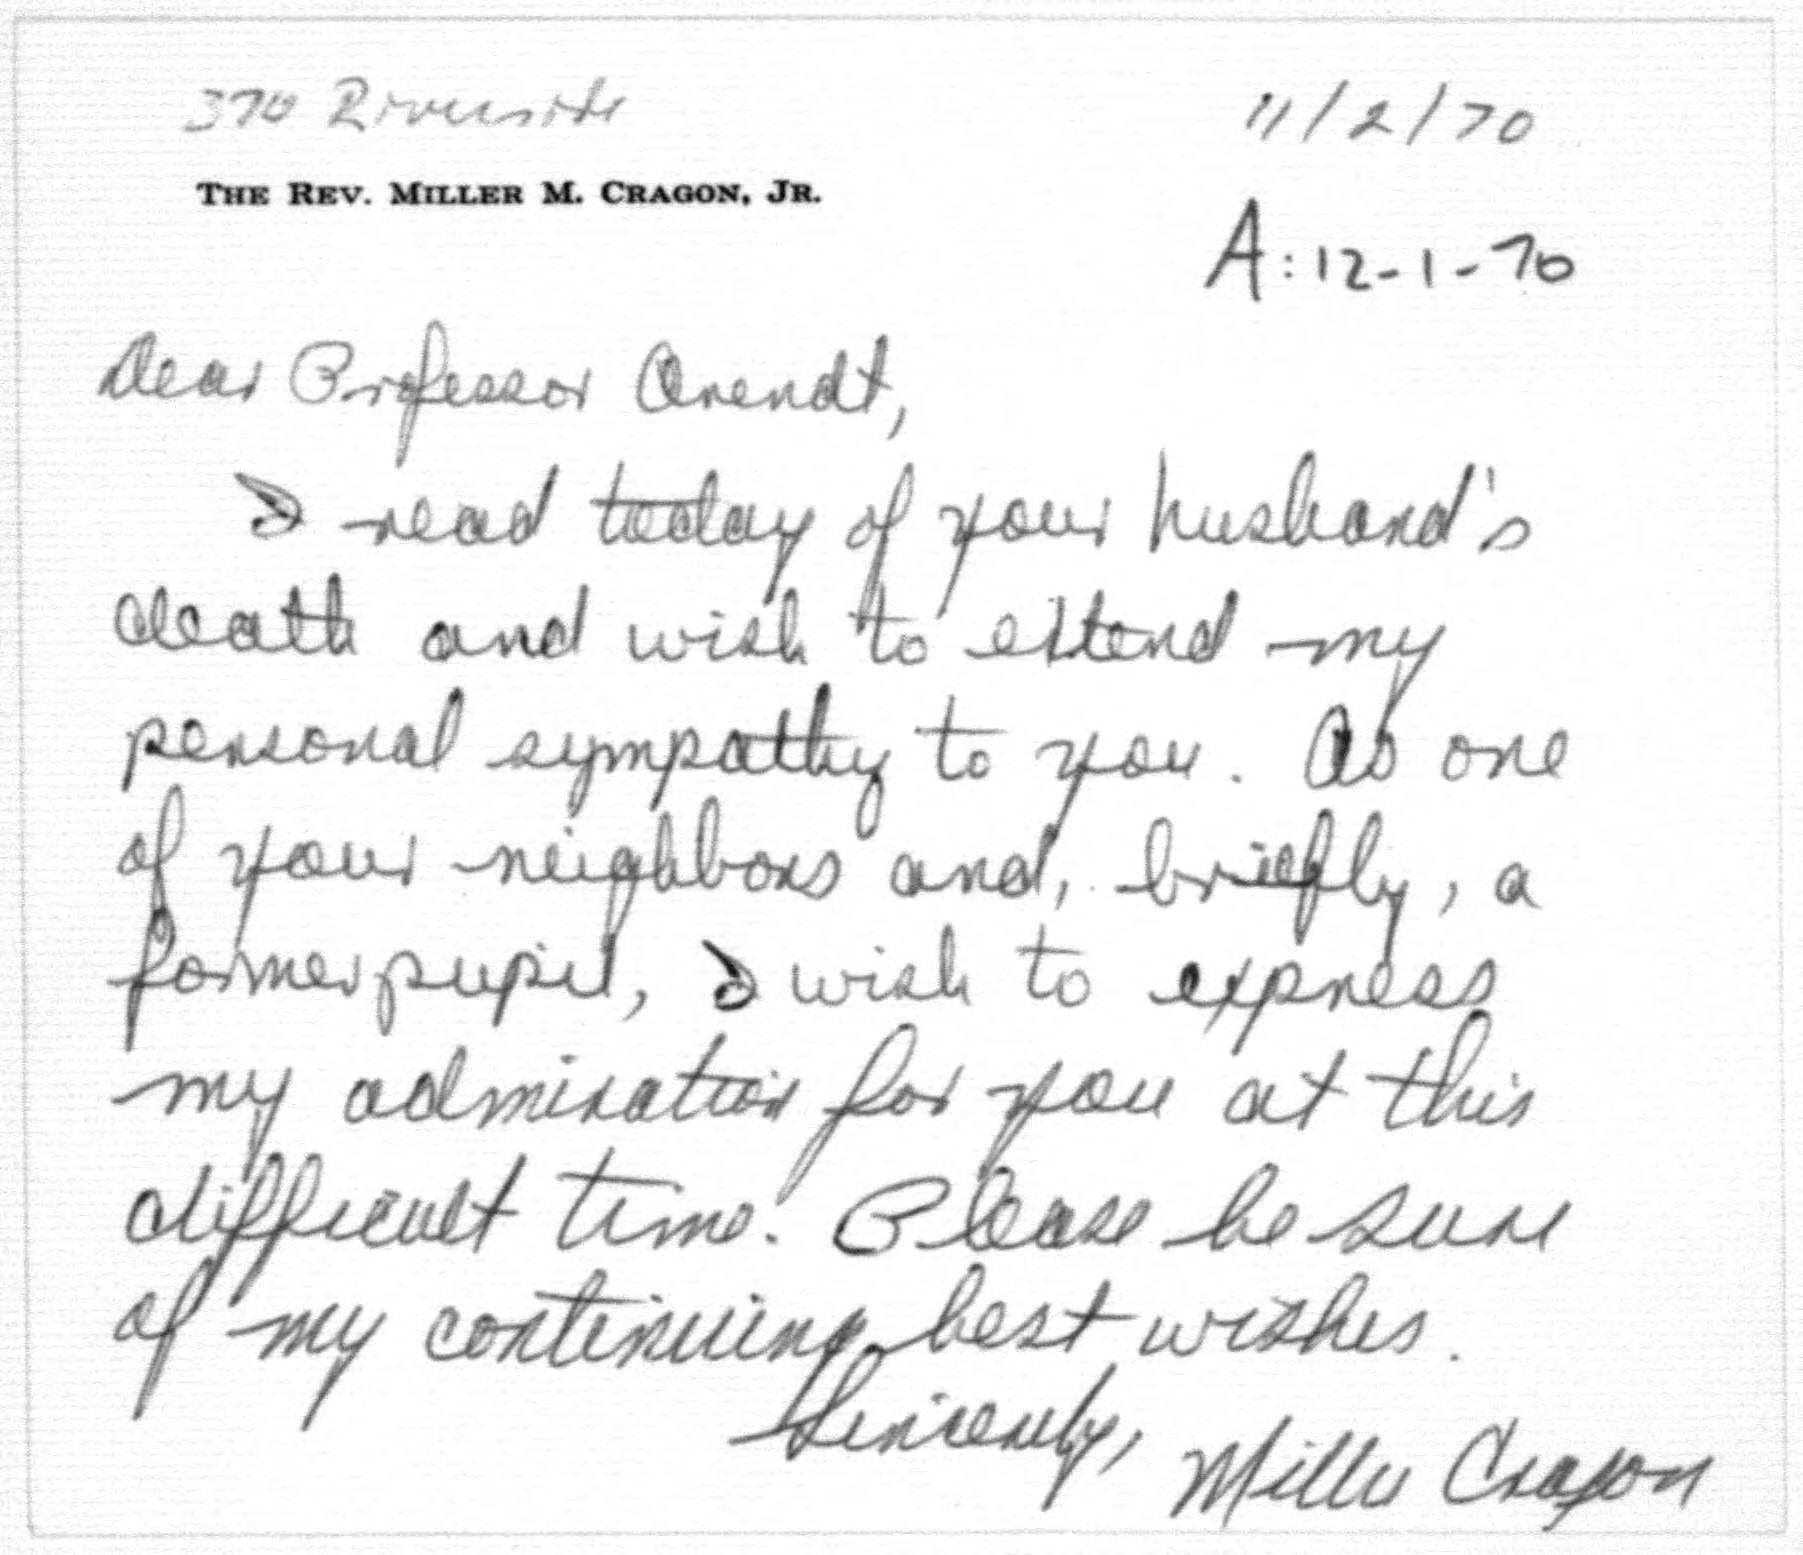 370 Riverside
11/2/70
THE REV. MILLER M. CRAGON, JR.
A: 12-1-70
Dear Professor Arendt,
I read today of your husband's
death and wish to extend my
personal sympathy to you. As one
of your neighbors and, briefly, a
former pupil, I wish to express
my admiration for you at this
difficult time. Please be sure
of my continuing best wishes.
Sincerely, Miller Cragon